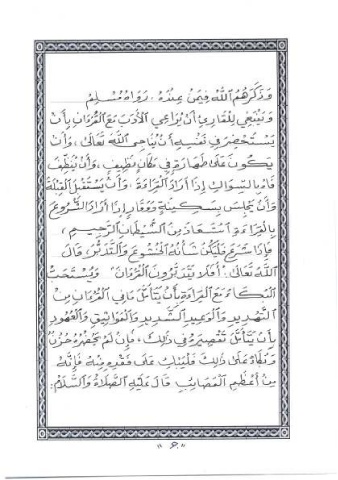 وَذَكَرَهُمُ اللهُ فِيمَنْ عِنْدَهُ . رَوَاهُ مُسْلِمٌ
وَيَنْبَغِي لِلْقَارِئِ أَنْ يُرَاعِيَ الْأَدَبَ مَعَ الْقُرْءَانِ بِأَنْ
يَسْتَحْضِرَ فِي نَفْسِهِ أَنَّهُ يُنَاجِي اللهَ تَعَالَى ، وَأَنْ
يَكُونَ عَلَى طَهَارَةٍ فِي مَكَانٍ نَظِيفٍ ، وَأَنْ يُنَظِّفَ
فَاهُ بِالسِّوَاكِ إِذَا أَرَادَ الْقِرَاءَةَ ، وَأَنْ يَسْتَقْبِلَ الْقِبْلَةَ
وَأَنْ يَجْلِسَ بِسَكِينَةٍ وَوَقَارٍ إِذَا أَرَادَ الشُّرُوعَ
بِالْقِرَاءَةِ اسْتَعَاذَ مِنَ الشَّيْطَانِ الرَّجِيمِ ،
فَإِذَا شَرَعَ فَلْيَكُنْ شَأْنُهُ الْخُشُوعَ وَالتَّدَبُّرَ ، قَالَ
اللهُ تَعَالَى : أَفَلَا يَتَدَبَّرُونَ الْقُرْءَانَ " وَيُسْتَحَبُّ
الْبُكَاءُ مَعَ الْقِرَاءَةِ بِأَنْ يَتَأَمَّلَ مَا فِي الْقُرْءَانِ مِنَ
التَّهْدِيدِ وَالْوَعِيدِ الشَّدِيدِ وَالْمَوَاثِيقِ وَالْعُهُودِ
بِأَنْ يَتَأَمَّلَ تَقْصِيرَهُ فِي ذَلِكَ ، فَإِنْ لَمْ يَحْضُرْهُ حُزْنٌ
وَبُكَاءٌ عَلَى ذَلِكَ فَلْيَبْكِ عَلَى فَقْدِهِ مِنْهُ فَإِنَّهُ
مِنْ أَعْظَمِ الْمَصَائِبِ قَالَ عَلَيْهِ الصَّلَاةُ وَالسَّلَامُ :